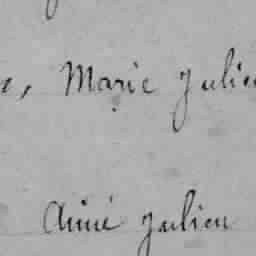 Marie Julien
Aimé Julien